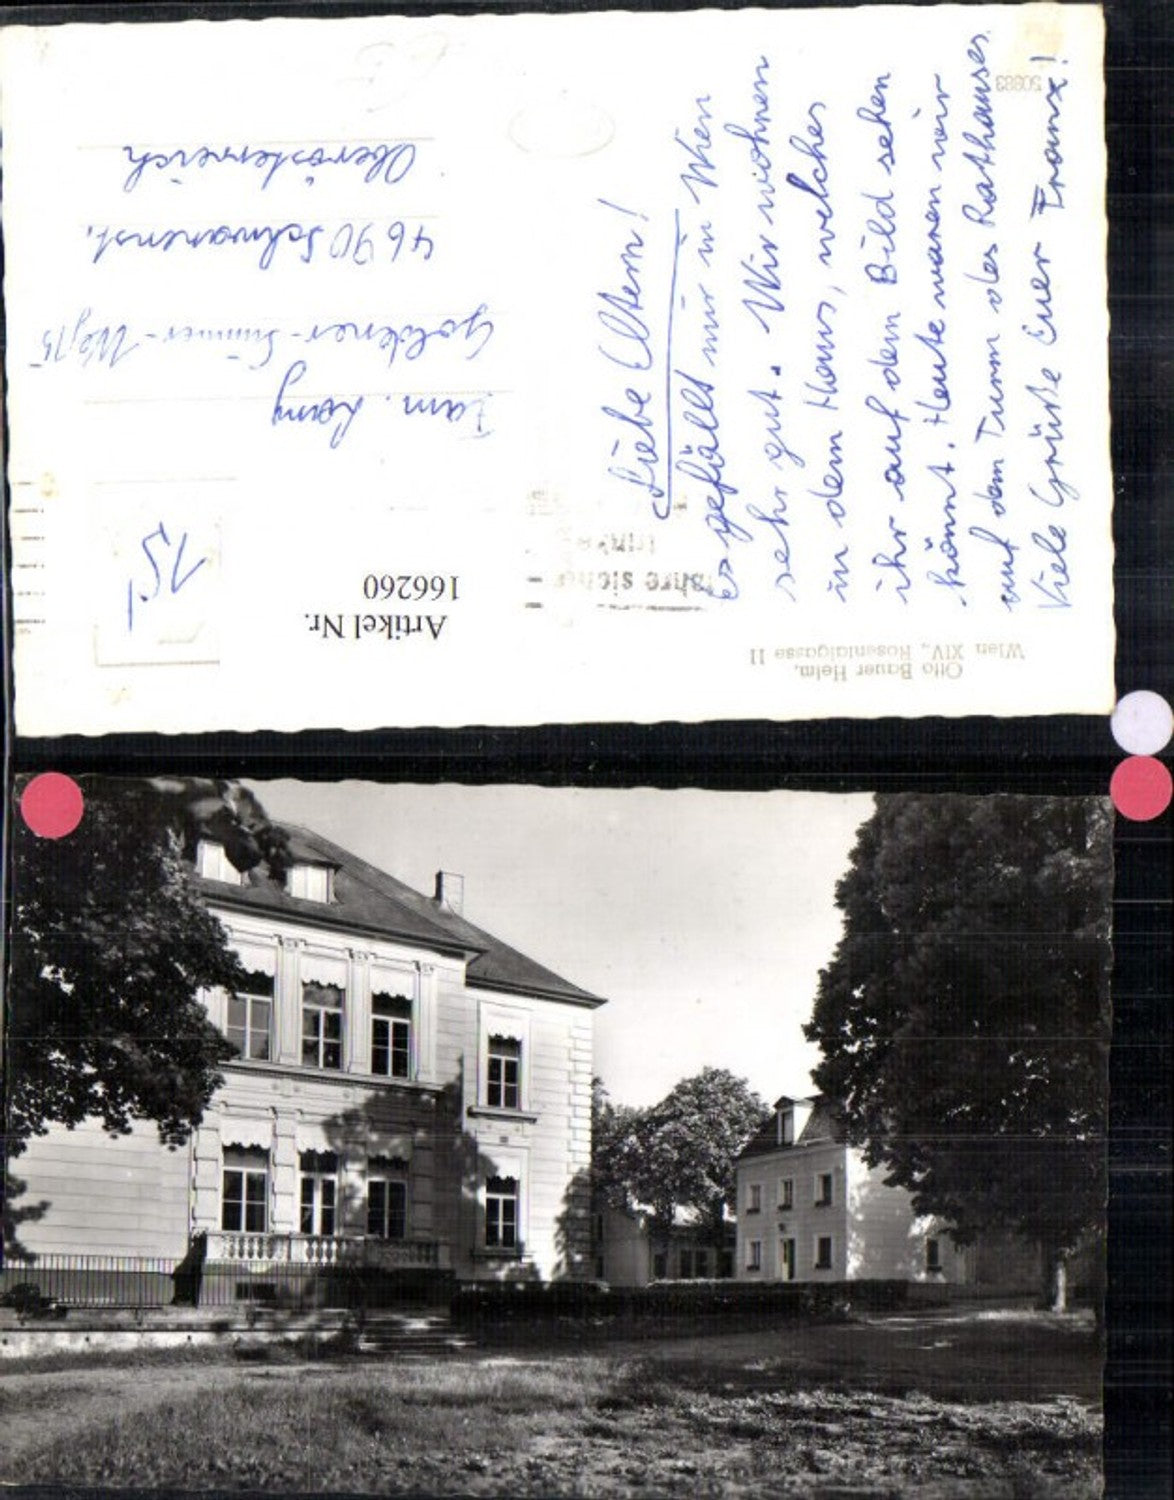 Liebe Eltern!
Es gefällt mir in Wien
sehr gut. Wir wohnen
in dem Haus, welches
ihr auf dem Bild sehen
könnt. Heute waren wir
auf dem Turm des Rathauses
Viele Grüße Euer Franz!
Fam. Lamy
Goldener-Simmer-Weg 15
4690 Schwanenst.
Oberösterreich
Artikel Nr.
166260
15,-
Otto Bauer Heim,
Wien XIV., Rosentalgasse 11
50883